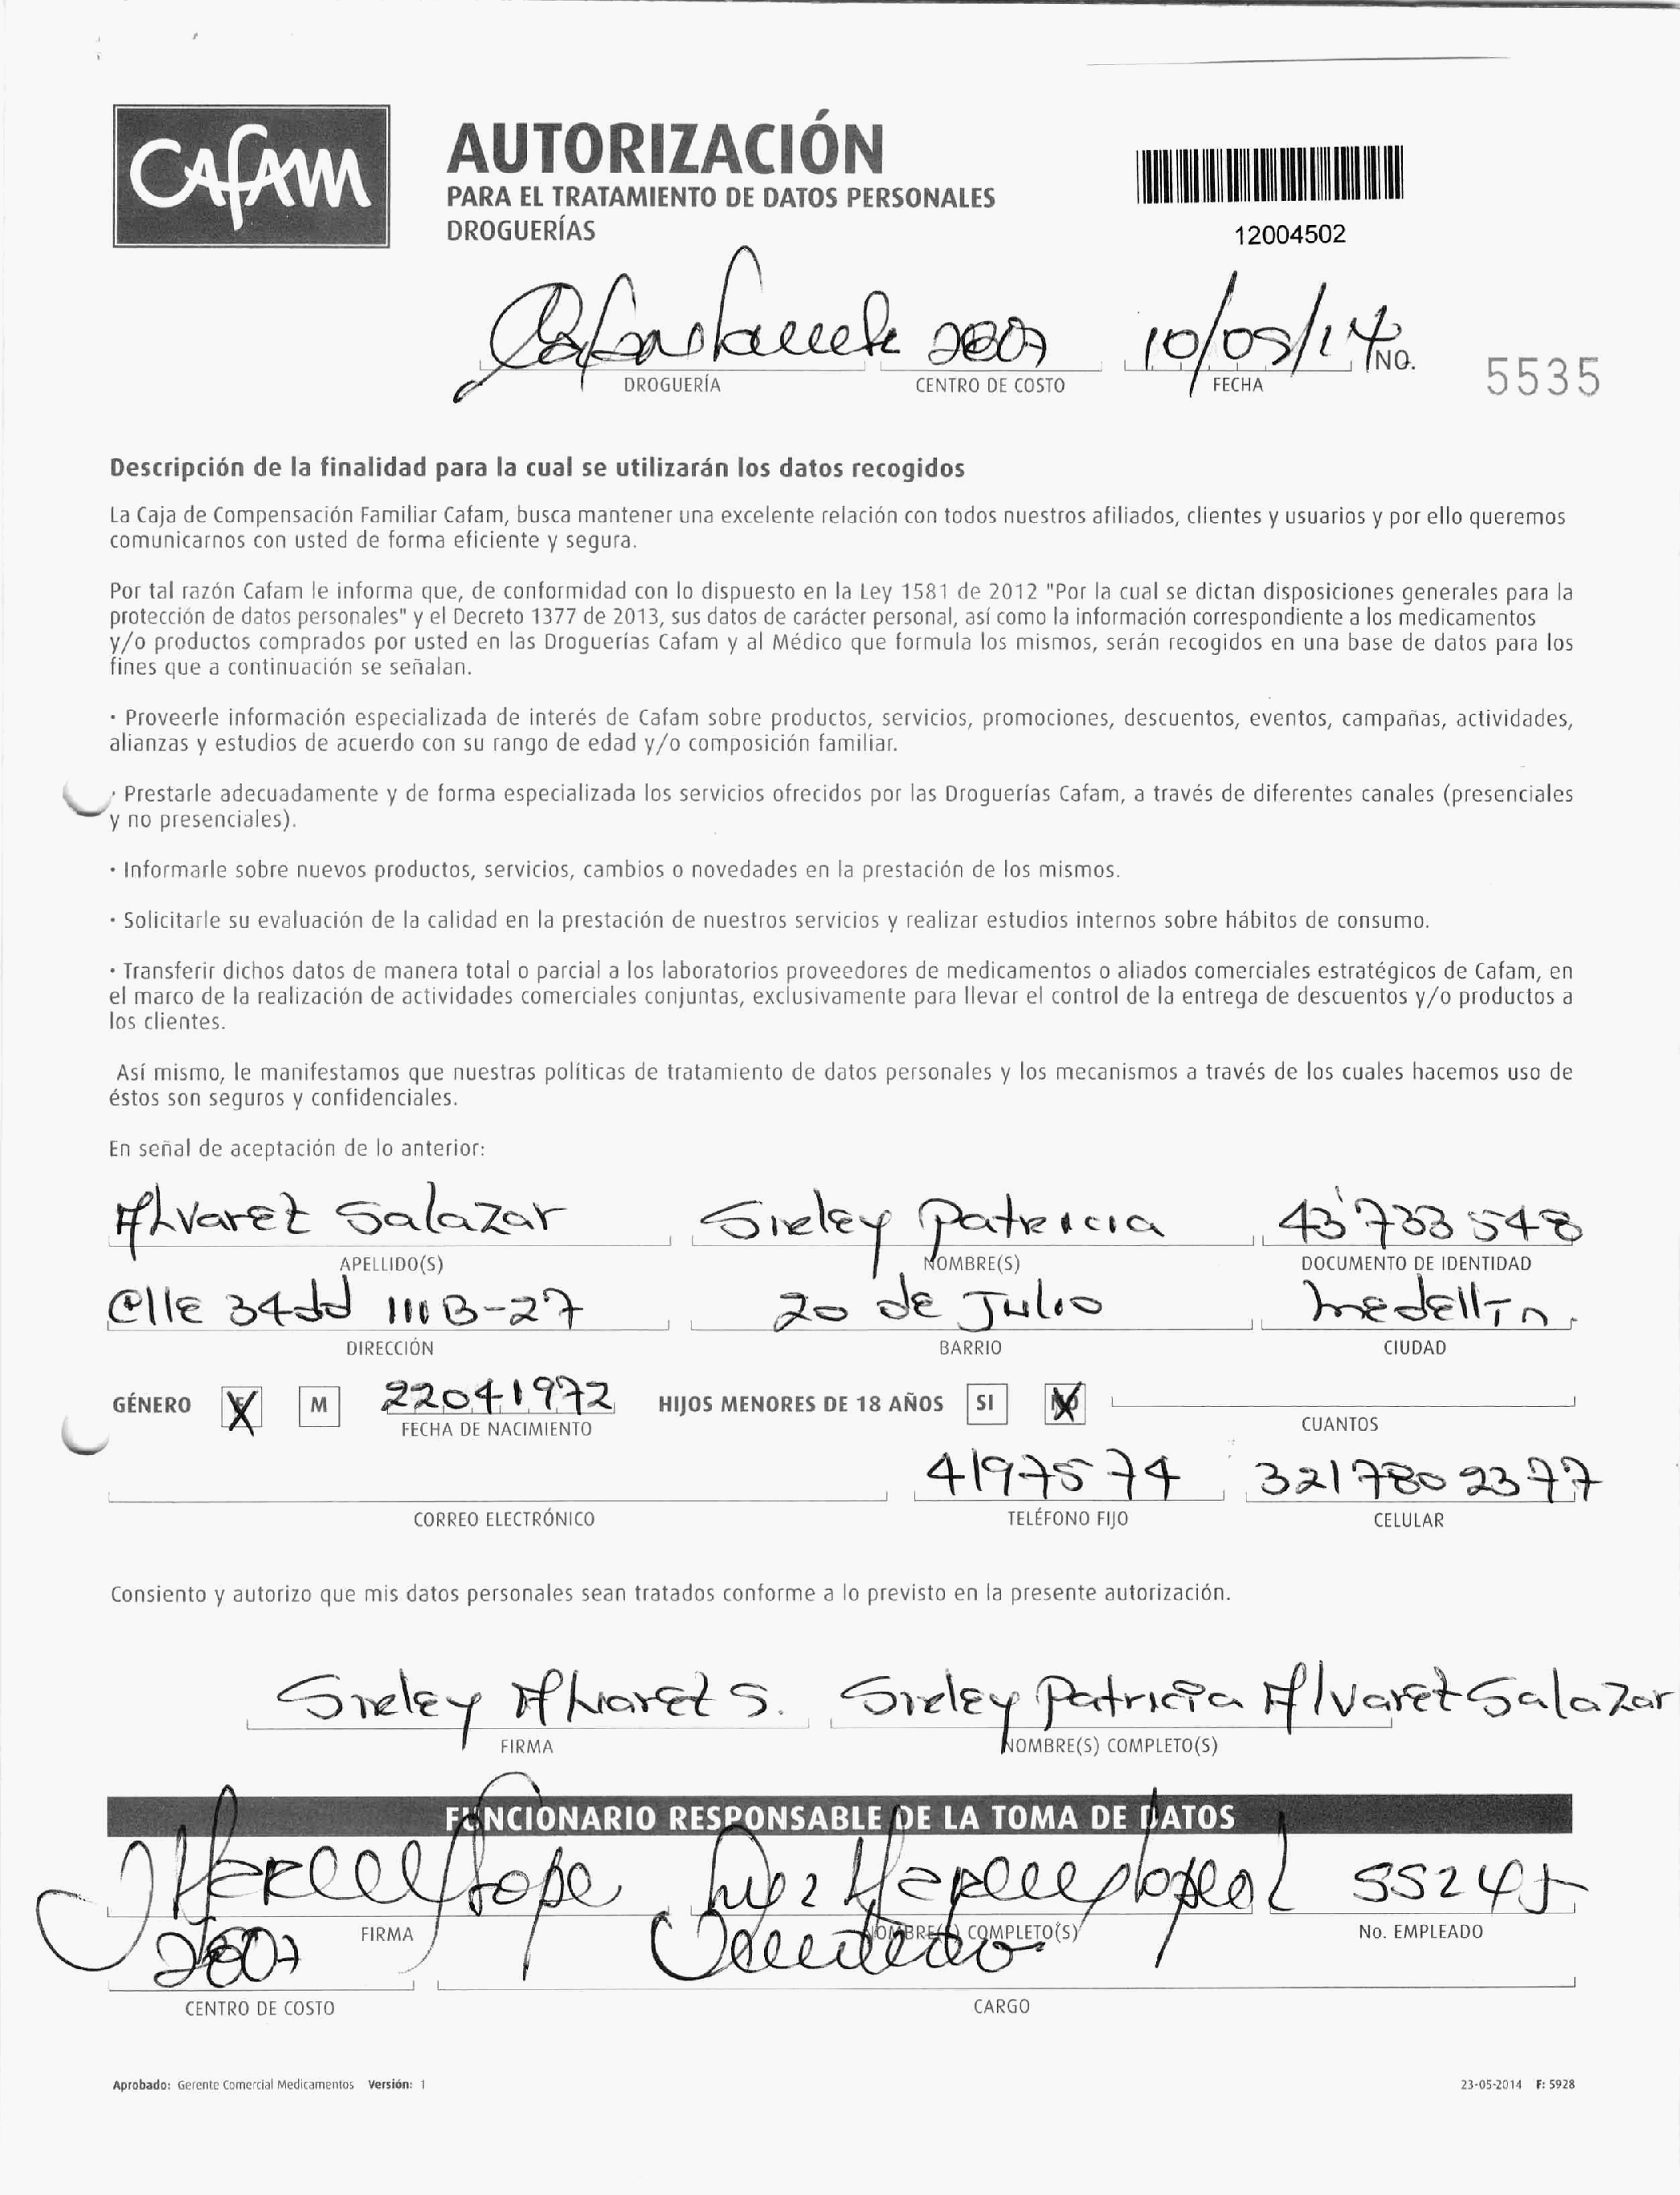 CAfAM
AUTORIZACIÓN
PARA EL TRATAMIENTO DE DATOS PERSONALES
DROGUERÍAS
12004502
10/09/14
DROGUERÍA CENTRO DE COSTO FECHA NO. 5535
Descripción de la finalidad para la cual se utilizarán los datos recogidos
La Caja de Compensación Familiar Cafam, busca mantener una excelente relación con todos nuestros afiliados, clientes y usuarios y por ello queremos
comunicarnos con usted de forma eficiente y segura.
Por tal razón Cafam le informa que, de conformidad con lo dispuesto en la Ley 1581 de 2012 "Por la cual se dictan disposiciones generales para la
protección de datos personales" y el Decreto 1377 de 2013, sus datos de carácter personal, así como la información correspondiente a los medicamentos
y/o productos comprados por usted en las Droguerías Cafam y al Médico que formula los mismos, serán recogidos en una base de datos para los
fines que a continuación se señalan.
· Proveerle información especializada de interés de Cafam sobre productos, servicios, promociones, descuentos, eventos, campañas, actividades,
alianzas y estudios de acuerdo con su rango de edad y/o composición familiar.
· Prestarle adecuadamente y de forma especializada los servicios ofrecidos por las Droguerías Cafam, a través de diferentes canales (presenciales
y no presenciales).
· Informarle sobre nuevos productos, servicios, cambios o novedades en la prestación de los mismos.
· Solicitarle su evaluación de la calidad en la prestación de nuestros servicios y realizar estudios internos sobre hábitos de consumo.
· Transferir dichos datos de manera total o parcial a los laboratorios proveedores de medicamentos o aliados comerciales estratégicos de Cafam, en
el marco de la realización de actividades comerciales conjuntas, exclusivamente para llevar el control de la entrega de descuentos y/o productos a
los clientes.
Así mismo, le manifestamos que nuestras políticas de tratamiento de datos personales y los mecanismos a través de los cuales hacemos uso de
éstos son seguros y confidenciales.
En señal de aceptación de lo anterior:
Alvarez Salazar Sirley Patricia 43'733548
APELLIDO(S) NOMBRE(S) DOCUMENTO DE IDENTIDAD
Clle 34dd 111B-27 20 de Julio Medellin.
DIRECCIÓN BARRIO CIUDAD
GÉNERO X M 22041972 HIJOS MENORES DE 18 AÑOS SI X
FECHA DE NACIMIENTO CUANTOS
4197574 3217802377
CORREO ELECTRÓNICO TELÉFONO FIJO CELULAR
Consiento y autorizo que mis datos personales sean tratados conforme a lo previsto en la presente autorización.
Sirley Alvarez S. Sirley Patricia Alvarez Salazar
FIRMA NOMBRE(S) COMPLETO(S)
FUNCIONARIO RESPONSABLE DE LA TOMA DE DATOS
FIRMA NOMBRE(S) COMPLETO(S) No. EMPLEADO
CENTRO DE COSTO CARGO
Aprobado: Gerente Comercial Medicamentos Versión: 1 23-05-2014 F: 5928